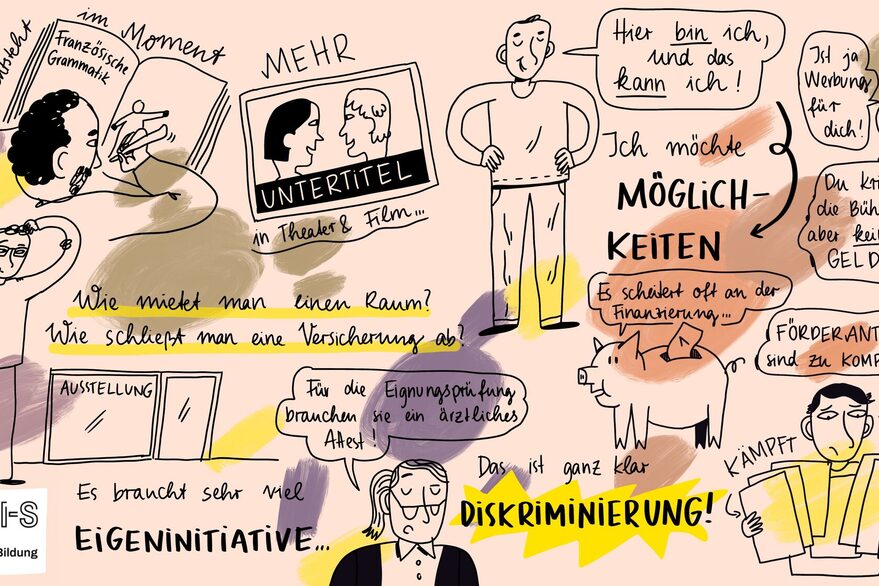 im
Moment
Französische
Grammatik
MEHR
UNTERTITEL
in Theater & Film...
Hier bin ich,
und das
kann ich!
Ist ja
Werbung
für
dich!
Ich möchte
MÖGLICH-
KEITEN
die Büh
aber
GELD
Es scheitert oft an der
Finanzierung...
FÖRDERANT
sind zu KOMP
Wie mietet man einen Raum?
Wie schließt man eine Versicherung ab?
AUSSTELLUNG
Für die Eignungsprüfung
brauchen sie ein ärztliches
Attest!
Das ist ganz klar
DISKRIMINIERUNG!
KÄMPFT
Es braucht sehr viel
EIGENINITIATIVE...
I-S
Bildung